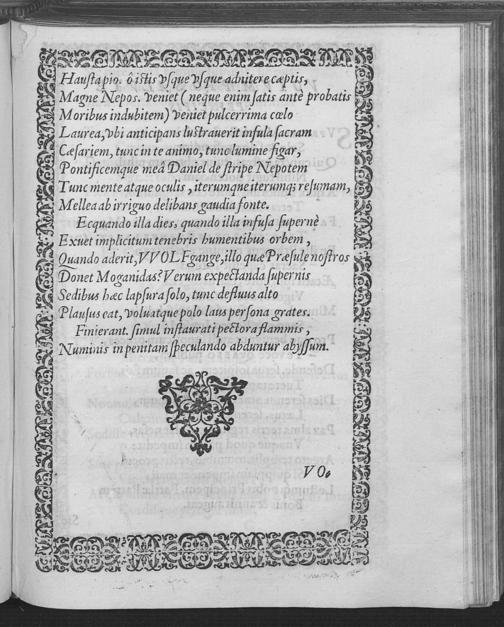 Hausta pio. ô istis vsque vsque adnitere cœptis,
Magne Nepos. veniet (neque enim satis antè probatis
Moribus indubitem) veniet pulcerrima cœlo
Laurea, vbi anticipans lustrauerit infula sacram
Cæsariem, tunc in te animo, tunc lumine figar,
Pontificemque meâ Daniel de stripe Nepotem
Tunc mente atque oculis, iterumque iterumqȝ resumam,
Mellea ab irriguo delibans gaudia fonte.
Ecquando illa dies, quando illa infusa supernè
Exuet implicitum tenebris humentibus orbem,
Quando aderit, VVOLFgange, illo quæ Præsule nostros
Donet Moganidas? Verum expectanda supernis
Sedibus hæc lapsura solo, tunc defluus alto
Plausus eat, voluatque polo laus persona grates.
Finierant. simul instaurati pectora flammis,
Numinis in penitam speculando abduntur abyssum.
VO.